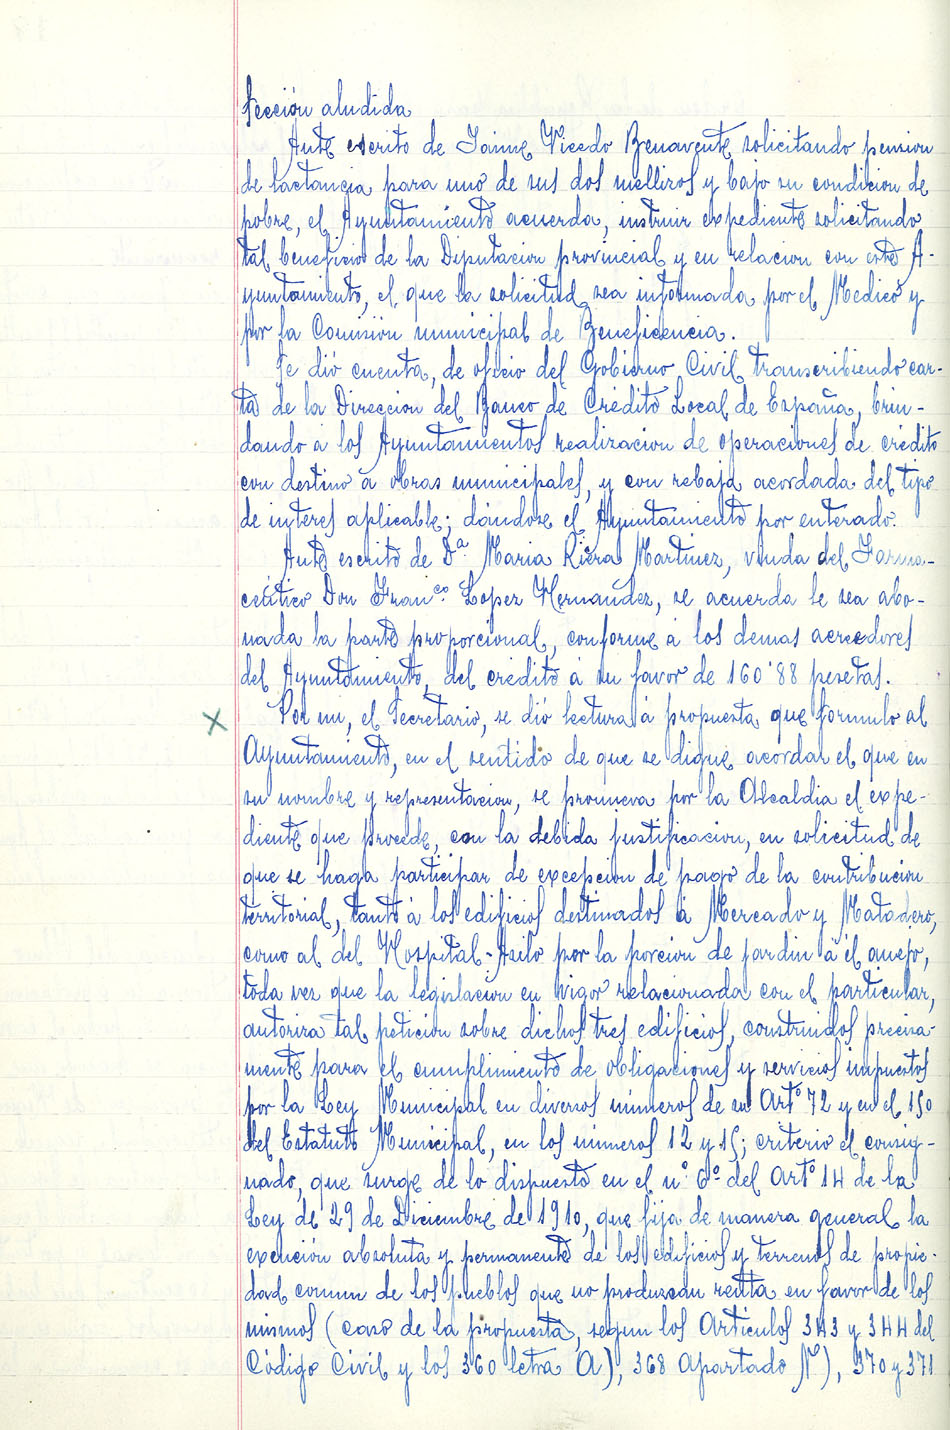 Sección aludida
Ante escrito de Jaime Vicedo Benavente solicitando pension
de lactancia para uno de sus dos mellizos y bajo su condicion de
pobre, el Ayuntamiento acuerda, instruir expediente solicitando
tal beneficio de la Diputacion provincial y en relacion con este A-
yuntamiento, el que la solicitud sea informada por el Medico y
por la Comisión municipal de Beneficencia.
Se dió cuenta, de oficio del Gobierno Civil transcribiendo car-
ta de la Direccion del Banco de Crédito Local de España, brin-
dando á los Ayuntamientos realizacion de operaciones de crédito
con destino á obras municipales, y con rebaja acordada del tipo
de interes aplicable; dándose el Ayuntamiento por enterado.
Ante escrito de Dª Maria Riera Martinez, viuda del Farma-
ceútico Don Franco Lopez Hernandez, se acuerda le sea abo-
nada la parte proporcional, conforme á los demas acreedores
del Ayuntamiento, del crédito á su favor de 160'88 pesetas.
X Por mi, el Secretario, se dió lectura á propuesta que formulo al
Ayuntamiento, en el sentido de que se digne acordar el que en
su nombre y representacion, se promueva por la Alcaldia el expe-
diente que procede, con la debida justificacion, en solicitud de
que se haga participar de excepcion de pago de la contribucion
territorial, tanto á los edificios destinados á Mercado y Matadero,
como al del Hospital-Asilo por la porcion de jardin á él anejo,
toda vez que la legislacion en vigor relacionada con el particular,
autoriza tal peticion sobre dichos tres edificios, construidos precisa-
mente para el cumplimiento de obligaciones y servicios impuestos
por la Ley Municipal en diversos números de su Artº 72 y en el 150
del Estatuto Municipal, en los números 12 y 15; criterio el consig-
nado, que surge de lo dispuesto en el nº 6º del Artº 14 de la
Ley de 29 de Diciembre de 1910, que fija de manera general la
exención absoluta y permanente de los edificios y terrenos de propie-
dad comun de los pueblos que no produzcan renta en favor de los
mismos (caso de la propuesta, segun los Articulos 343 y 344 del
Código Civil y los 360 letra A), 368 apartado N), 370 y 371